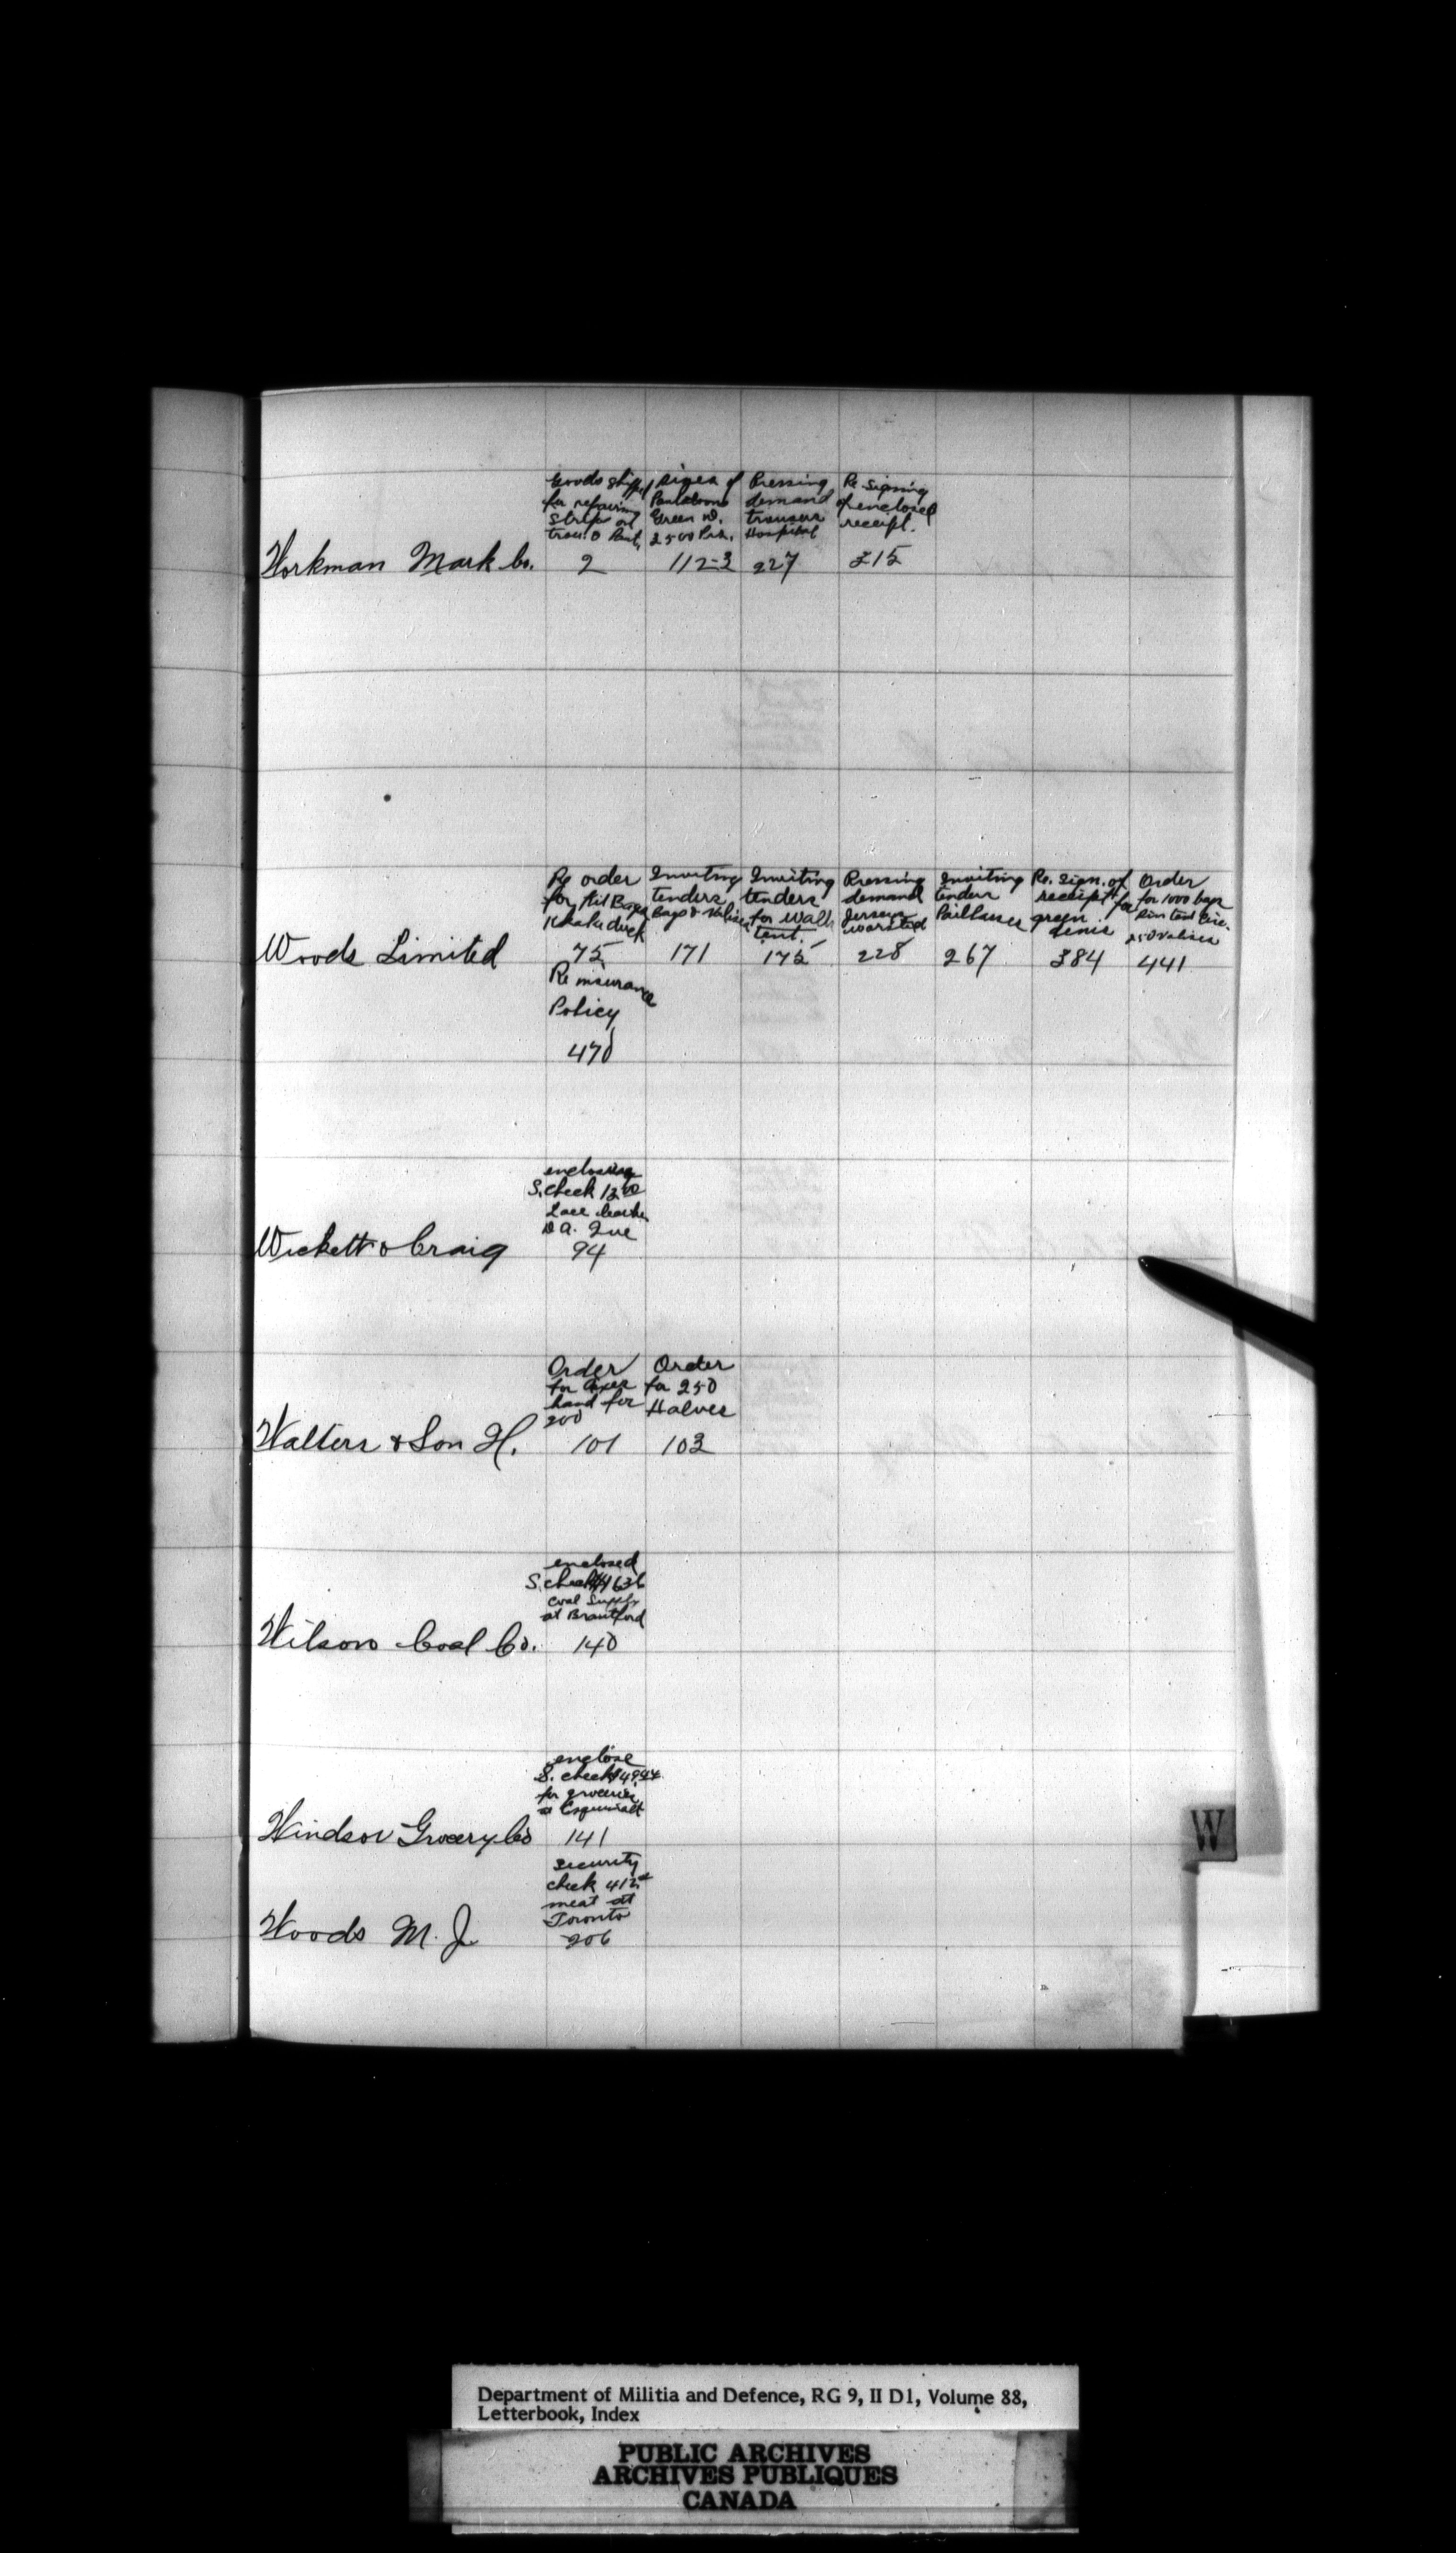 Goods shipped
for repairing
Stripe on
trou. & Pant.
Sizes of
Pantaloons
Green
2500 Prs.
Pressing
demand
trousers
Hospital
Re signing
of enclosed
receipt.
Workman Mark Co. 2 112-3 227 315
Re order
for Kit Bags
Khaki duck
Inviting
tenders
Bags & Valises
Inviting
tenders
for wall
tent.
Pressing
demand
Jerseys
worsted
Inviting
tender
Paillasses
Re. Sign. of
receipt for
green
Order
for 1000 bags
tent Circ.
250 valises
Woods Limited 75 171 175 228 267 384 441
Re insurance
Policy
470
enclosing
S. check
Lace leather
D.A. Que
Wickett & Craig 94
Order
for Axes
hand for
200
Order
for 250
Halves
Walters & Son H. 101 103
enclosed
S. check
Coal Supply
at Brantford
Wilson Coal Co. 140
enclose
S. check
for groceries
at Esquimalt
Windsor Grocery Co 141
Security
check
meat at
Toronto
Woods M. J. 206
W
Department of Militia and Defence, RG 9, II D1, Volume 88,
Letterbook, Index
PUBLIC ARCHIVES
ARCHIVES PUBLIQUES
CANADA